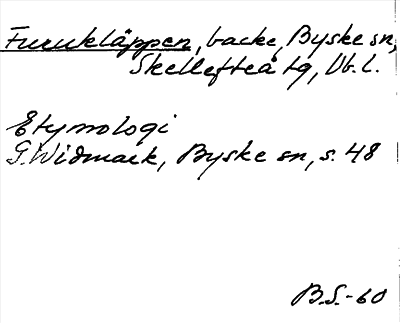 Furukläppen, backe, Byske sn,
Skellefteå tg, Vb. l.
Etymologi
G. Widmark, Byske sn, s. 48
B.S.-60